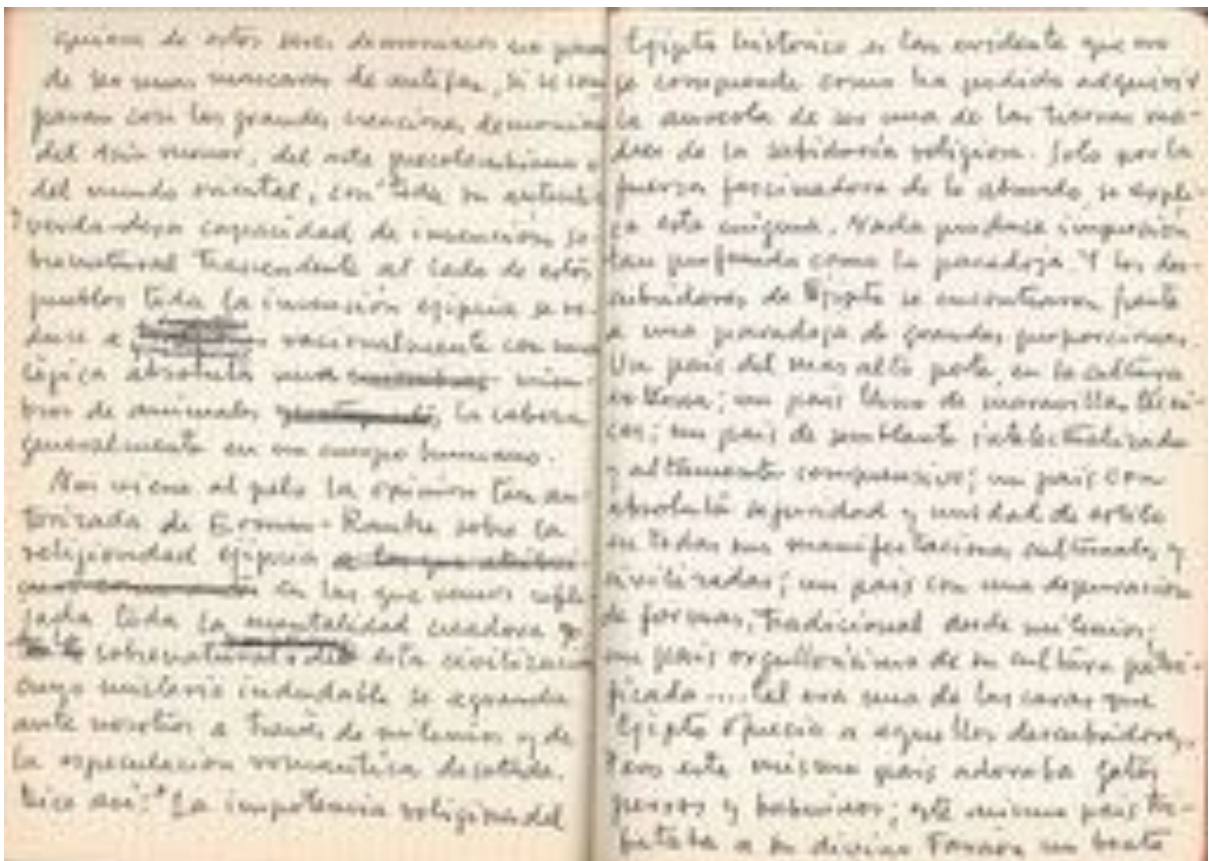 quiera de estos seres demoniacos no pasan
de ser unas mascaras de antifaz, si se com
paran con las grandes creaciones demonia
del Asia menor, del arte precolombiano o
del mundo oriental, con toda su
verdadera capacidad de invención so-
brenatural trascendente al lado de estos
pueblos toda la invención egipcia se re-
duce a racionalmente con una
lógica absoluta miem-
bros de animales la cabeza
generalmente en un cuerpo humano.
Nos viene al pelo la opinión tan au-
torizada de Erman-Ranke sobre la
religiosidad egipcia
en las que vemos refle
jada toda la mentalidad creadora
sobrenatural de esta civilización
cuyo misterio indudable se agranda
ante nosotros a través de milenios y de
la especulación romantica desatada.
Dice asi: "La impotencia religiosa del
Egipto historico es tan evidente que no
se comprende como ha podido adquirir
la aureola de ser una de las tierras ma-
dres de la sabiduría religiosa. Solo por la
fuerza fascinadora de lo absurdo se expli-
ca este enigma. Nada produce impresión
tan profunda como la paradoja. Y los des-
cubridores de Egipto se encontraron frente
a una paradoja de grandes proporciones.
Un país del mas alto en la cultura
; un país lleno de maravillas técni-
cas; un país de semblante intelectualizado
y altamente comprensivo; un país con
absoluta seguridad y unidad de estilo
en todas sus manifestaciones culturales y
civilizadas; un país con una depuración
de formas, tradicional desde milenios;
un país orgullosisimo de su cultura petri-
ficada .... tal era una de las caras que
Egipto ofrecia a aquellos descubridores.
Pero este mismo país adoraba gatos
perros y babuinos; este mismo país tri-
butaba a su divino Faraón un